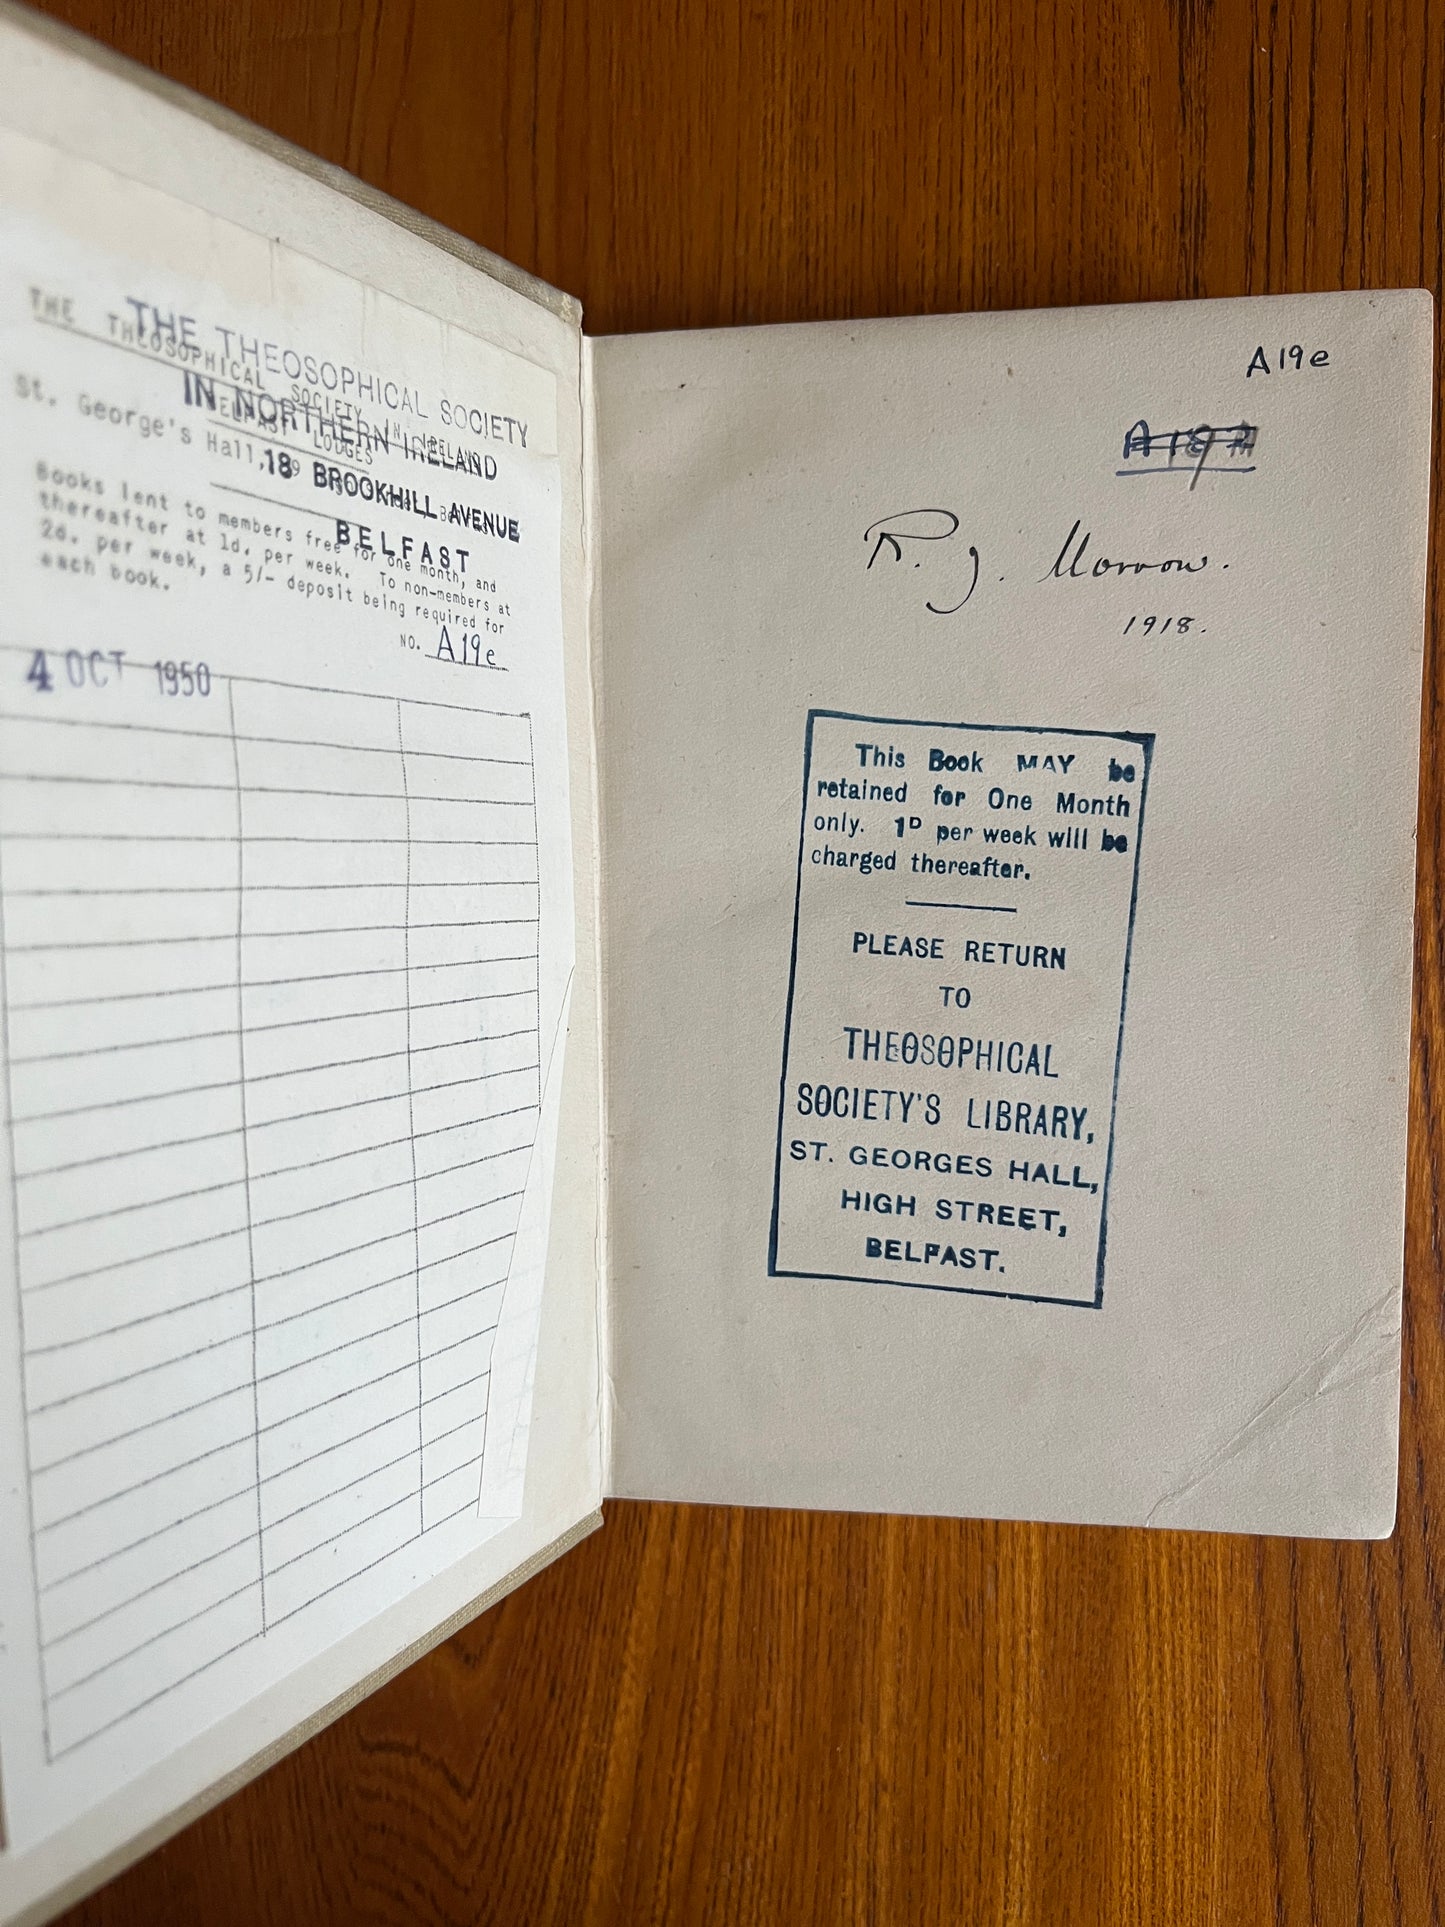 THE THEOSOPHICAL SOCIETY
IN NORTHERN IRELAND
18 BROOKHILL AVENUE
BELFAST
THE THEOSOPHICAL SOCIETY IN IRELAND
BELFAST LODGES
St. George's Hall,
Books lent to members free for one month, and
thereafter at 1d. per week. To non-members at
2d. per week, a 5/- deposit being required for
each book.
NO. A19e
4 OCT 1950
A19e
R. J. Morrow.
1918.
This Book MAY be
retained for One Month
only. 1D per week will be
charged thereafter.
PLEASE RETURN
TO
THEOSOPHICAL
SOCIETY'S LIBRARY,
ST. GEORGES HALL,
HIGH STREET,
BELFAST.